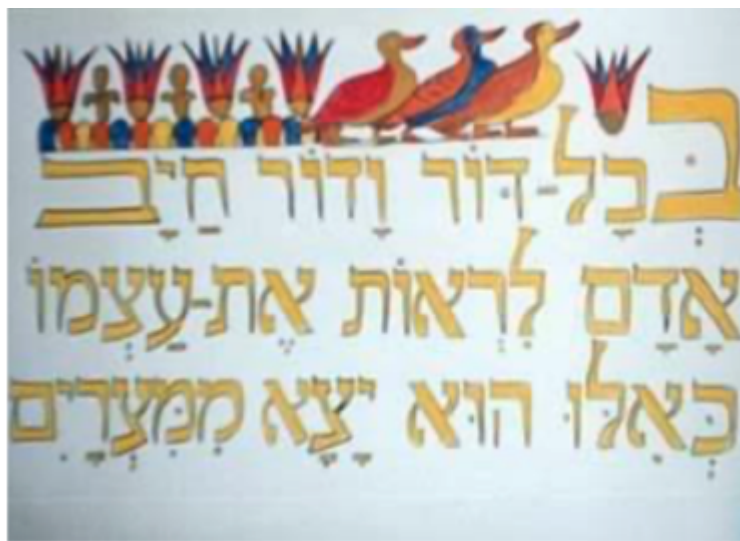 בְּכָל-דּוֹר וָדוֹר חַיָּב
אָדָם לִרְאוֹת אֶת-עַצְמוֹ
כְּאִלּוּ הוּא יָצָא מִמִּצְרָיִם